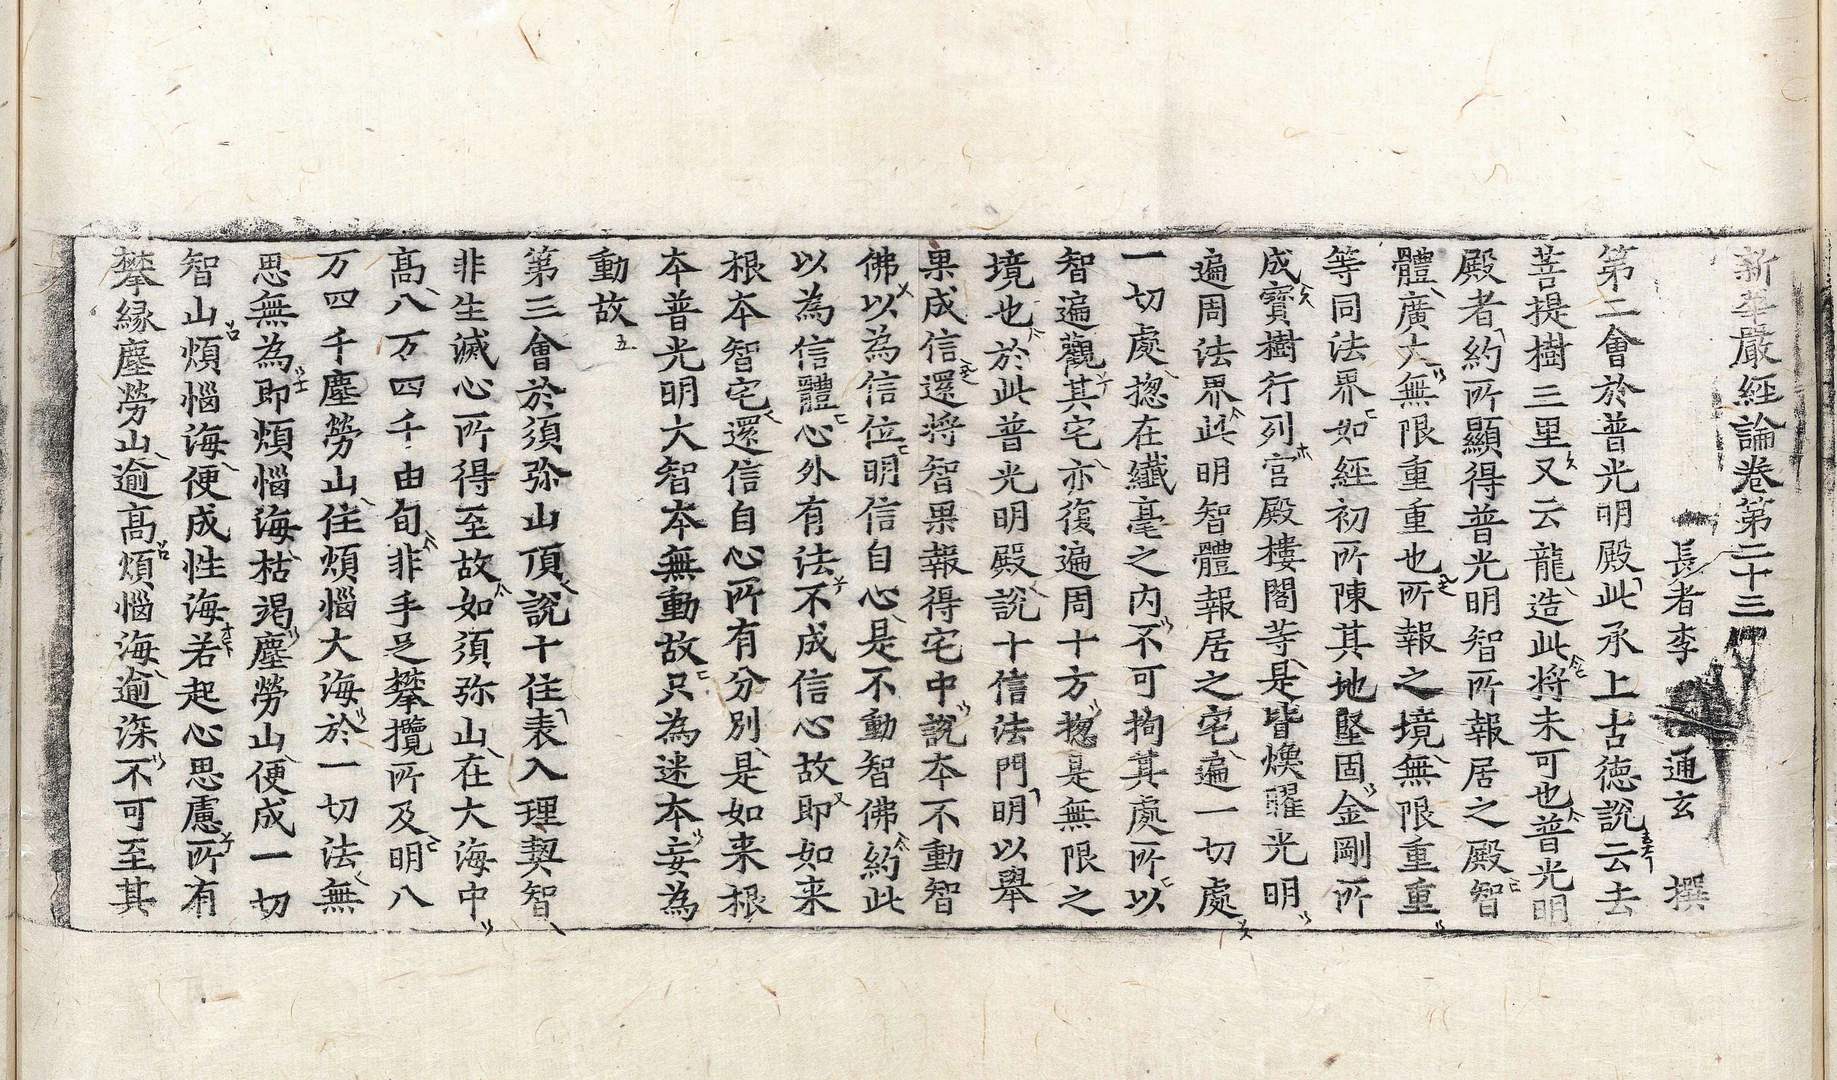 新華嚴經論卷第二十三
長者李通玄撰
第二會於普光明殿此承上古德說云去
菩提樹三里又云龍造此將未可也普光明
殿者約所顯得普光明智所報居之殿智
體廣大無限重重也所報之境無限重重
等同法界如經初所陳其地堅固金剛所
成寶樹行列宮殿樓閣等是皆煥耀光明
遍周法界此明智體報居之宅遍一切處
一切處揔在纖毫之內不可拘其處所以
智遍觀其宅亦復遍周十方揔是無限之
境也於此普光明殿說十信法門明以舉
果成信還將智果報得宅中說本不動智
佛以為信位明信自心是不動智佛約此
以為信體心外有法不成信心故即如来
根本智宅還信自心所有分別是如来根
本普光明大智本無動故只為迷本妄為
動故
第三會於須弥山頂說十住表入理契智
非生滅心所得至故如須弥山在大海中
高八万四千由旬非手足攀攬所及明八
万四千塵勞山住煩惱大海於一切法無
思無為即煩惱海枯渴塵勞山便成一切
智山煩惱海便成性海若起心思慮所有
攀緣塵勞山逾高煩惱海逾深不可至其